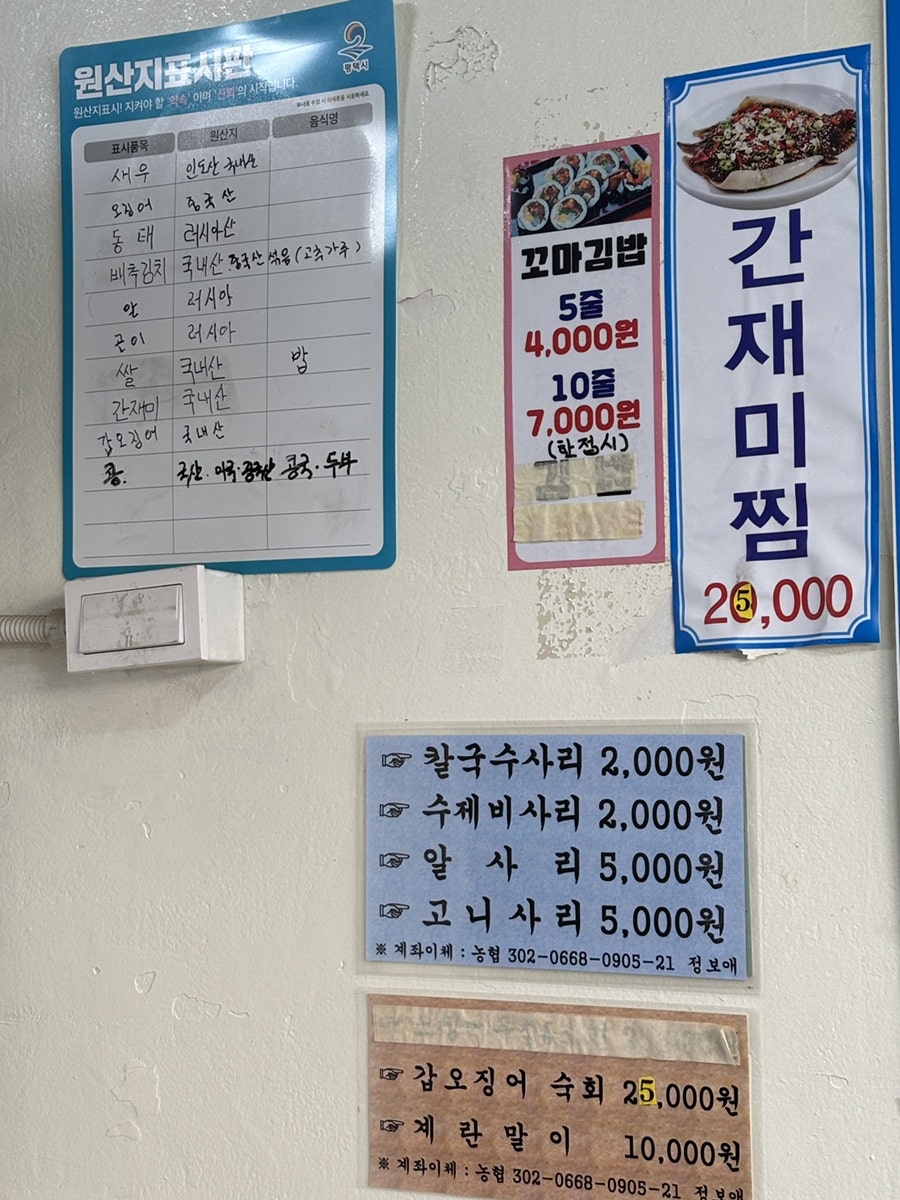 원산지표시판
평택시
원산지표시! 지켜야 할 '약속' 이며 '신뢰'의 시작입니다.
표시품목 원산지 음식명
새우 인도산 국내산
오징어 중국산
동태 러시아산
배추김치 국내산 중국산 섞음 (고춧가루)
알 러시아
곤이 러시아
쌀 국내산 밥
간재미 국내산
갑오징어 국내산
콩. 국산. 미국. 중국산 콩국. 두부
꼬마김밥
5줄
4,000원
10줄
7,000원
(한접시)
간재미찜
25,000
☞ 칼국수사리 2,000원
☞ 수제비사리 2,000원
☞ 알 사 리 5,000원
☞ 고니사리 5,000원
※ 계좌이체 : 농협 302-0668-0905-21 정보애
☞ 갑오징어 숙회 25,000원
☞ 계 란 말 이 10,000원
※ 계좌이체 : 농협 302-0668-0905-21 정보애